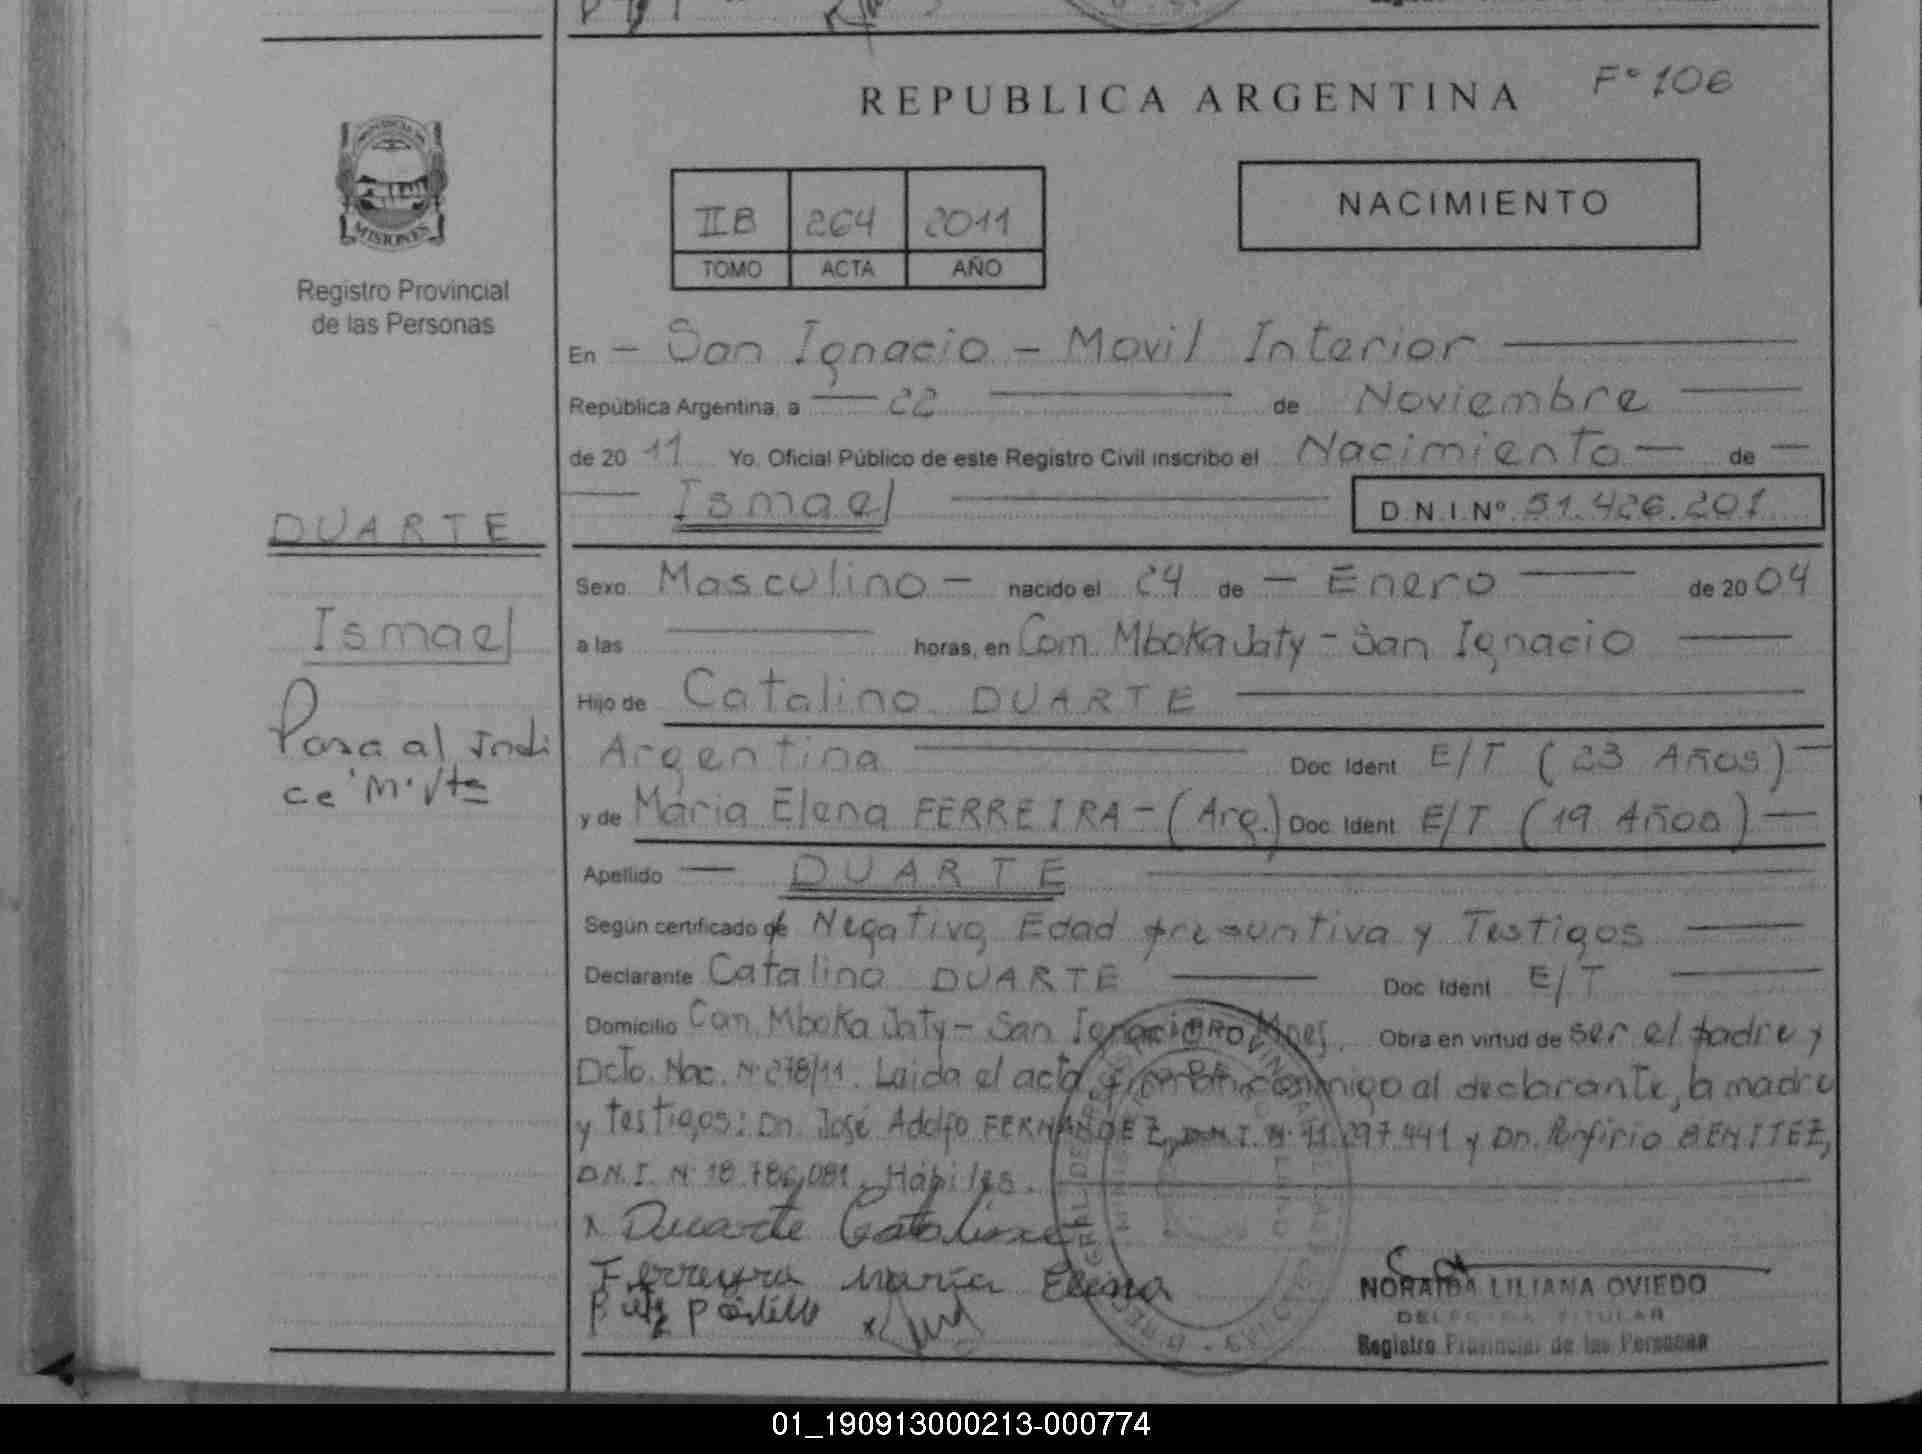 REPUBLICA ARGENTINA F° 106
PROVINCIA DE
MISIONES
Registro Provincial
de las Personas
IIB 264 2011
TOMO ACTA AÑO
NACIMIENTO
En - San Ignacio - Movil Interior
República Argentina, a 22 de Noviembre
de 2011 Yo, Oficial Público de este Registro Civil inscribo el Nacimiento - de -
Ismael D.N.I.Nº 51.426.201
DUARTE
Ismael
Pasa al Indi
ce
Sexo Masculino - nacido el 24 de - Enero de 2004
a las horas, en Com. Mboka Jaty - San Ignacio
Hijo de Catalino DUARTE
Argentina Doc. Ident E/T (23 Años)
y de Maria Elena FERREIRA - (Arg.) Doc. Ident E/T (19 Años)
Apellido DUARTE
Según certificado de Negativo, Edad presuntiva y Testigos
Declarante Catalino DUARTE Doc. Ident E/T
Domicilio Com. Mboka Jaty - San Ignacio Mnes. Obra en virtud de ser el padre y
Dcto. Nac. Nº 278/11. Leida el acta, firman conmigo el declarante, la madre
y testigos: Dn. José Adolfo FERNANDEZ, D.N.I. Nº 11.297.441 y Dn. Porfirio BENITEZ,
D.N.I. Nº 18.786.081. Hábiles.
x Duarte Catalino
Ferreyra Maria Elena
NORAIDA LILIANA OVIEDO
DELEGADA TITULAR
Registro Provincial de las Personas
01_190913000213-000774